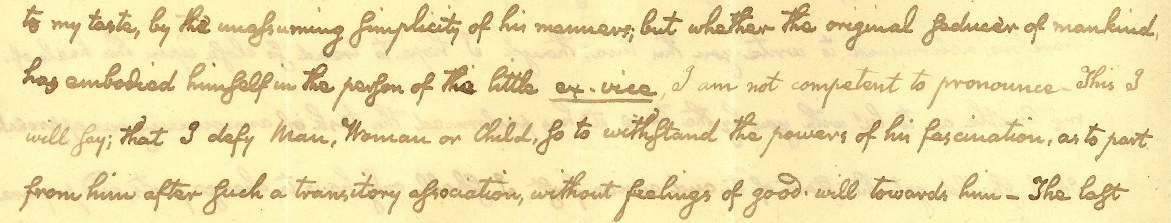 to my taste, by the unassuming simplicity of his manners; but whether the original seducer of mankind,
has embodied himself in the person of the little ex-vice, I am not competent to pronounce – This I
will say; that I defy Man, Woman or Child, so to withstand the powers of his fascination, as to part
from him after such a transitory association, without feelings of good-will towards him – The last